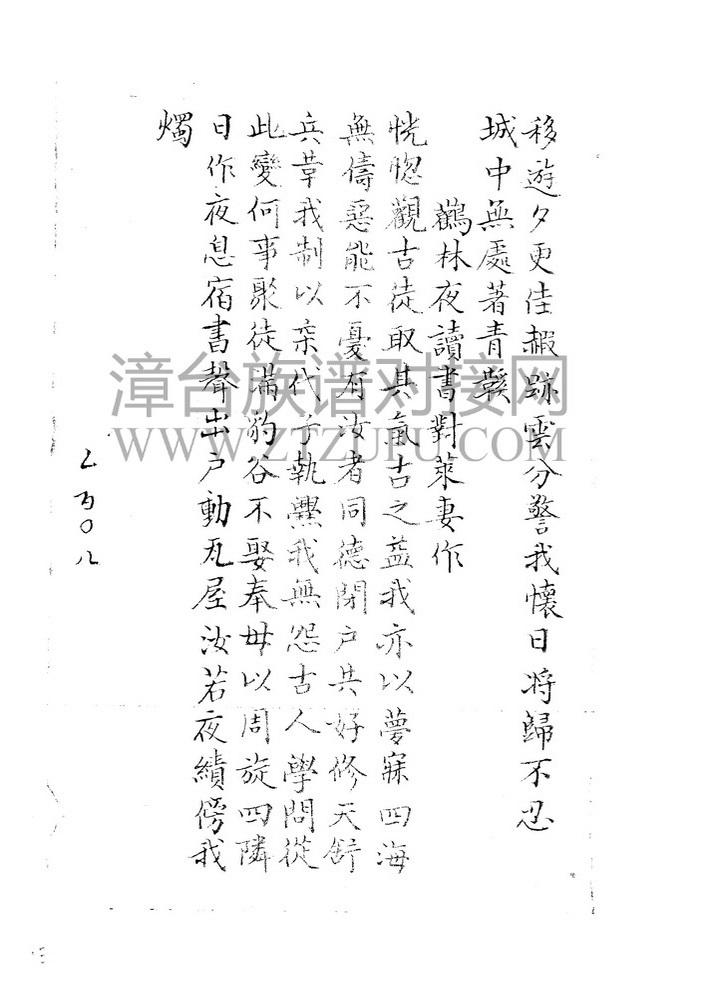 移遊夕更佳赧跡雲分警我懷日将歸不忍
城中無處著青鞵
鸛林夜讀書對萊妻作
恍惚觀古徒取其氣古之益我亦以夢寐四海
無儔惡能不憂有汝者同德閉户共好修天舒
兵革我制以柔代子執爨我無怨古人學問從
此變何事聚徒滿豹谷不娶奉毋以周旋四隣
日作夜息宿書聲出户動瓦屋汝若夜績傍我
燭
乙百〇八
漳台族谱对接网
WWW.ZTZUFU.COM